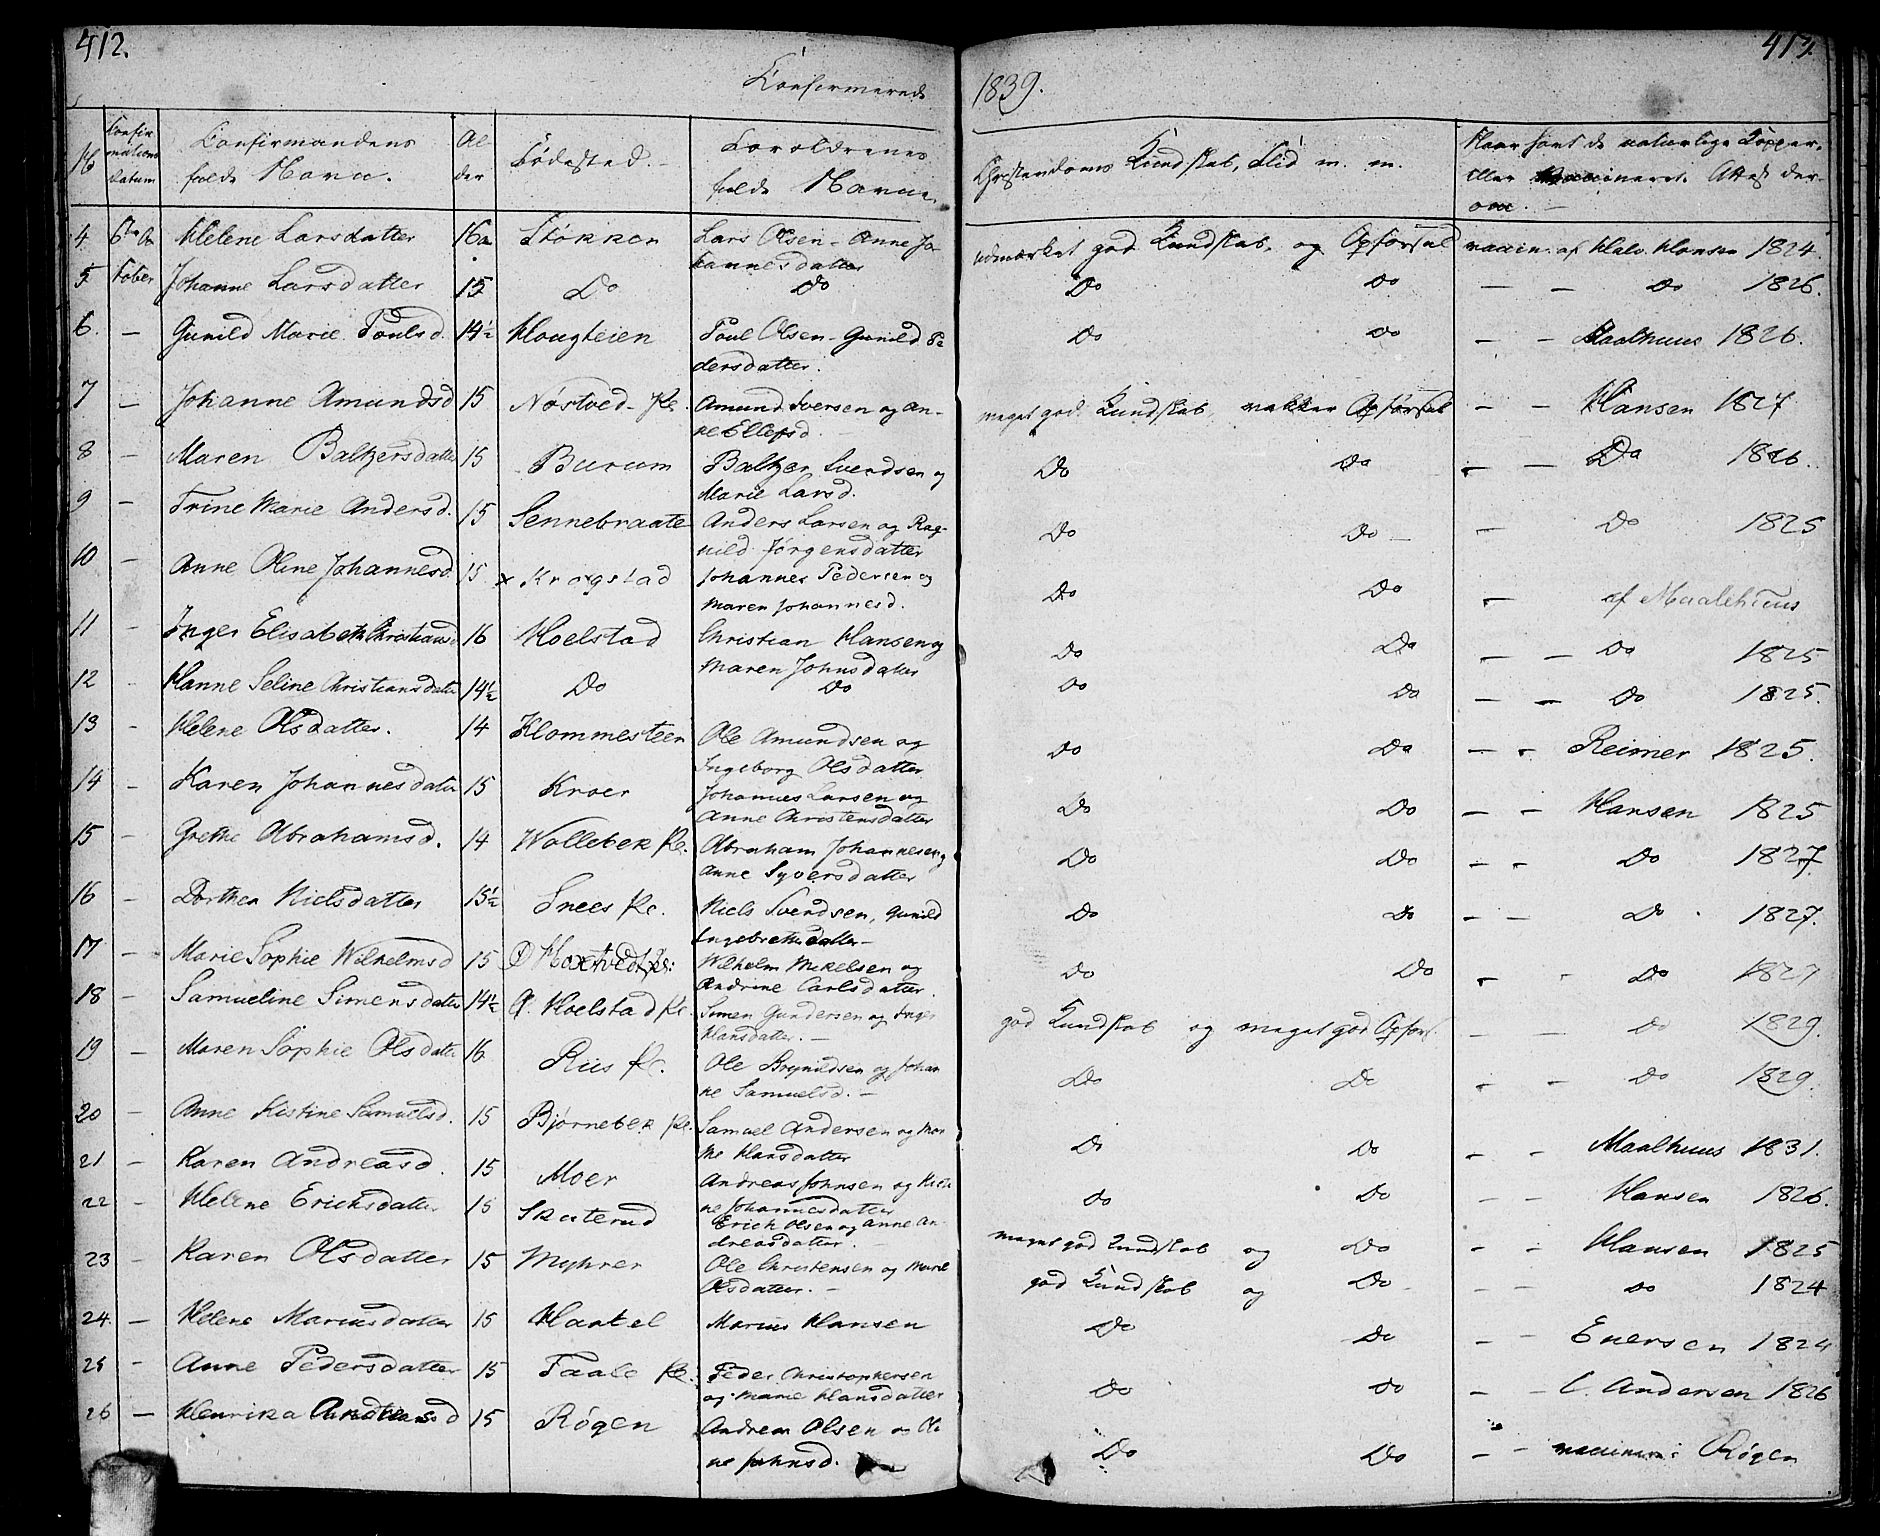 412.
413.
Confirmerede
1839.
№
Confirmations Datum
Confirmandens fulde Navn.
Alder
Fødested.
Forældrenes fulde Navne.
Christendoms Kundskab, Flid m. m.
Naar havt de naturlige Kopper, eller vaccineret. Attest derom.
4 6te Oc Helene Larsdatter 16 Støkken Lars Olsen - Anne Johannesdatter udmærket god Kundskab og Opførsel vaccin. af Halv. Hansen 1824.
5 tober Johanne Larsdatter 15 Do Do Do Do — — Do 1826.
6. — Gunild Marie Poulsd. 14½ Hougteien Poul Olsen - Gunild Pedersdatter. Do Do — — Maalhuus 1826.
7 — Johanne Amundsd 15 Nøstved - Pl. Amund Iversen og Anne Ellefsd. meget god Kundskab, vakker Opførsel — — Hansen 1827
8 — Maren Baltzersdatter 15 Burum Baltzer Svendsen og Marie Larsd. Do Do — — Do 1826.
9 — Trine Marie Andersd. 15 Sennebraate Anders Larsen og Ragnild Jørgensdatter Do Do — — Do 1825
10 — Anne Oline Johannesd. 15 x Krogstad Johannes Pedersen og Maren Johannesd. Do Do — af Maalehuus
11 — Inger Elisabeth Christiansd 16 Hoelstad Christian Hansen og Maren Johnsdatter Do Do — — Do 1825
12 Hanne Seline Christiansdatter 14½ Do Do Do Do — — Do 1825.
13 — Helene Olsdatter. 14 Klommesteen Ole Amundsen og Ingeborg Olsdatter Do Do — - Reimer 1825.
14 — Karen Johannesdatter 15 Kroer Johannes Larsen og Anne Christensdatter Do Do — — Hansen 1825
15 — Grethe Abrahamsd. 14 Wollebek Pl. Abraham Johannesen og Anne Syversdatter Do Do — — Do 1827.
16 — Dorthea Nielsdatter 15½ Snees Pl. Niels Svendsen, Gunild Ingebretsdatter — Do Do — — Do 1827.
17 — Marie Sophie Wilhelmsd 15 Wilhelm Mikelsen og Andrine Carlsdatter. Do Do — - Do 1827
18 — Samueline Simensdatter 14½ Hoelstad Pl. Simen Gundersen og Inger Hansdatter. — god Kundskab og meget god Opførs. — — Do 1829.
19 — Maren Sophie Olsdatter 16 Riis Pl. Ole Brynildsen og Johanne Samuelsd. — Do Do — — Do 1829.
20 — Anne Kistine Samuelsd. 15 Bjørnebek Pl. Samuel Andersen og Hansdatter Do Do — — Maalhuus 1831.
21 — Karen Andreasd. 15 Moer Andreas Johnsen og Johannesdatter Do Do — — Hansen 1826.
22 — Helene Erichsdatter 15 Skuterud Erich Olsen og Anne Andreasdatter. — meget god Kundskab og Do — — Hansen 1825
23 — Karen Olsdatter 15 Myhrer Ole Christensen og Marie Olsdatter. — god Kundskab og Do — — Do 1824
24. — Helene Mariusdatter 15 Haekel Marius Hansen Do Do — — Enersen 1824
25 — Anne Pedersdatter 15 Taale Pl. Peder Christophersen og Marie Hansdatter Do Do — — C. Andersen 1826
26 — Henrika Andreasd 15 Røgen Andreas Olsen og Oline Johnsd. Do Do — — i Røgen